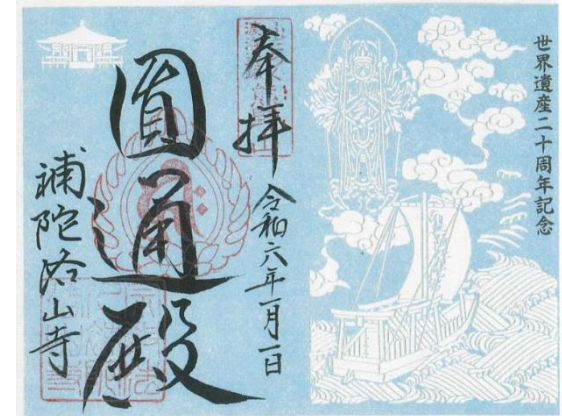 世界遺産二十周年記念
奉拝
令和六年一月一日
圓通殿
補陀洛山寺